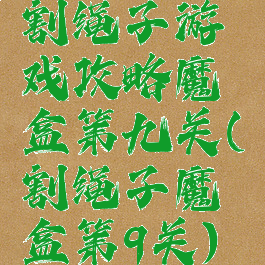 割绳子游
戏攻略魔
盒第九关(
割绳子魔
盒第9关)